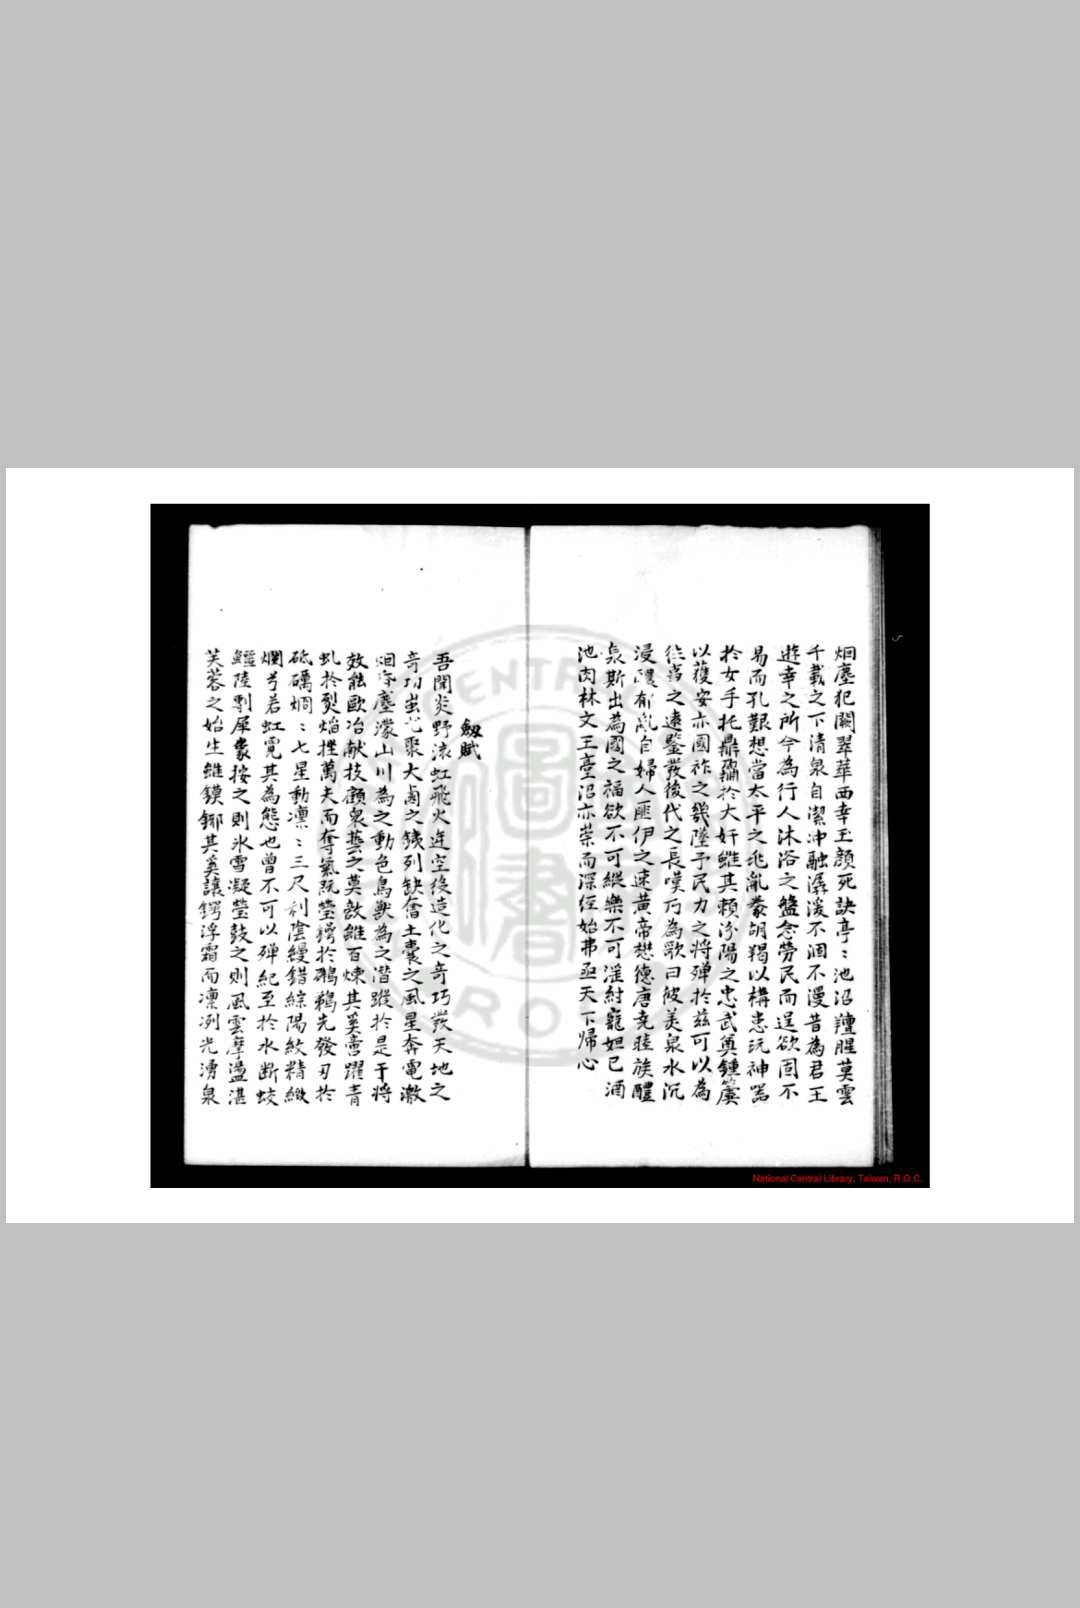 烟塵犯闕翠華西幸玉顏死訣亭〻池沼羶腥莫雲
千載之下清泉自潔沖融潺湲不涸不漫昔為君王
遊幸之所今為行人沐浴之盤念勞民而逞欲固不
易而孔艱想當太平之兆亂豢胡羯以構患玩神器
於女手托鼎鼐於大奸雖其賴汾陽之忠武奠鍾簴
以獲安亦國祚之幾墜予民力之將殫於茲可以為
往古之遠鑒發後代之長嘆乃為歌曰彼美泉水沉
浸醲郁亂自婦人匪伊之速黃帝懋德唐堯睦族醴
泉斯出為國之福欲不可縱樂不可淫紂寵妲己酒
池肉林文王臺沼亦崇而深經始弗亟天下歸心
劔賦
吾聞炎野滾虹飛火迸空役造化之奇巧發天地之
奇功蚩尤聚大鹵之鐵列缺奮土囊之風星奔電激
烟 塵濛山川為之動色鳥獸為之潛蹤於是干將
效能歐冶献技顧衆藝之莫敵雖百煉其奚啻躍青
虬於烈焰挫萬夫而奪氣既瑩鍔於鸊鵜先發刃於
砥礪烱〻七星動凛〻三尺利陰縵錯綜陽紋精緻
爛兮若虹霓其為態也曾不可以殫紀至於水断蛟
鱷陸剸犀象按之則氷雪凝瑩鼓之則風雲摩盪湛
芙蓉之始生雖鏌鋣其奚讓鍔浮霜而凛冽光湧泉
National Central Library, Taiwan, R.O.C.